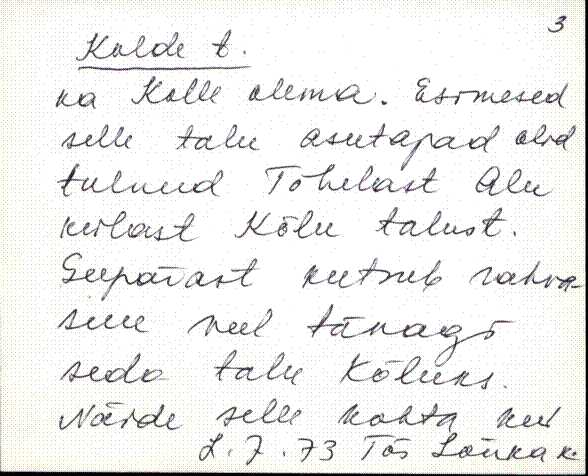 3
Kolde t.
ka Kolle olema. Esimesed
selle talu asutajad olid
tulnud Tõhelast Alu
külast Kõlu talust.
Seepärast kutsub rahva-
suu veel tänagi
seda talu Kõluks.
Näide selle kohta kui
L. 7. 73 Tõs Lõuka k.